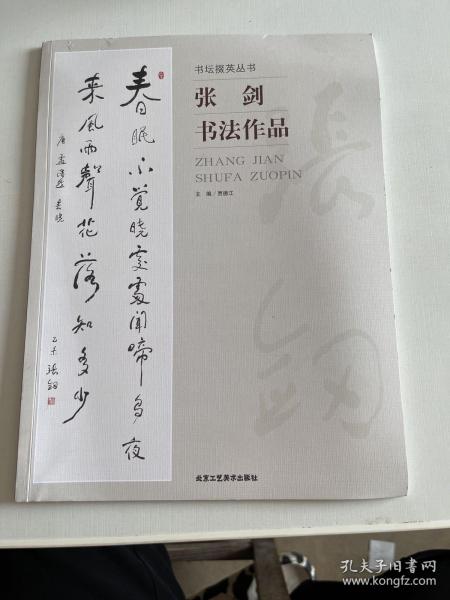 春眠不覺晓處處聞啼鳥夜
来風雨聲花落知多少
唐 孟浩然 春晓
乙未 張劍
书坛掇英丛书
张 剑
书法作品
ZHANG JIAN
SHUFA ZUOPIN
主 编/贾德江
張劍
北京工艺美术出版社
孔夫子旧书网
www.kongfz.com